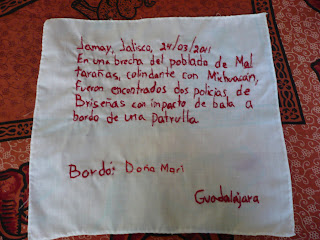 Jamay, Jalisco, 24/03/2011
En una brecha del poblado de Mal
tarañas, colindante con Michuacán,
Fueron encontrados dos policías, de
Briseñas con impacto de bala a
bordo de una patrulla
Bordó: Doña Mari
Guadalajara